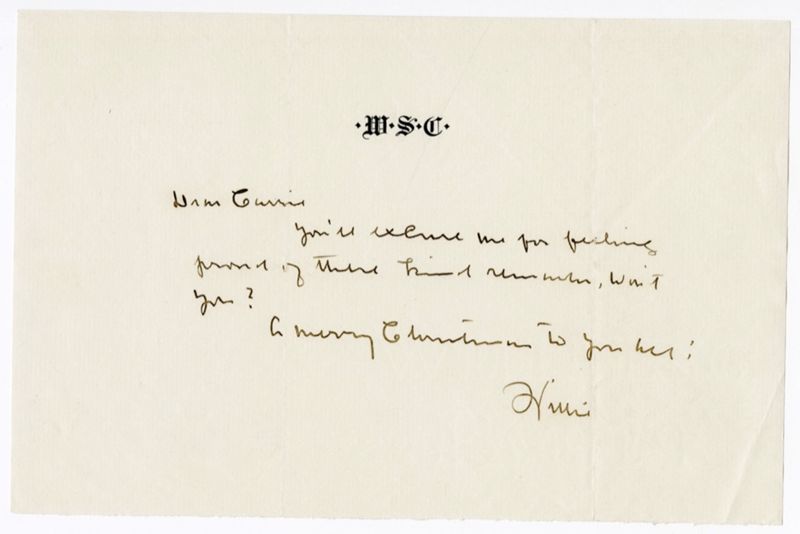 ·W·S·C·
Dear Carrie
You'll excuse me for feeling
proud of these kind remarks, won't
you?
A merry Christmas to you all!
Willie